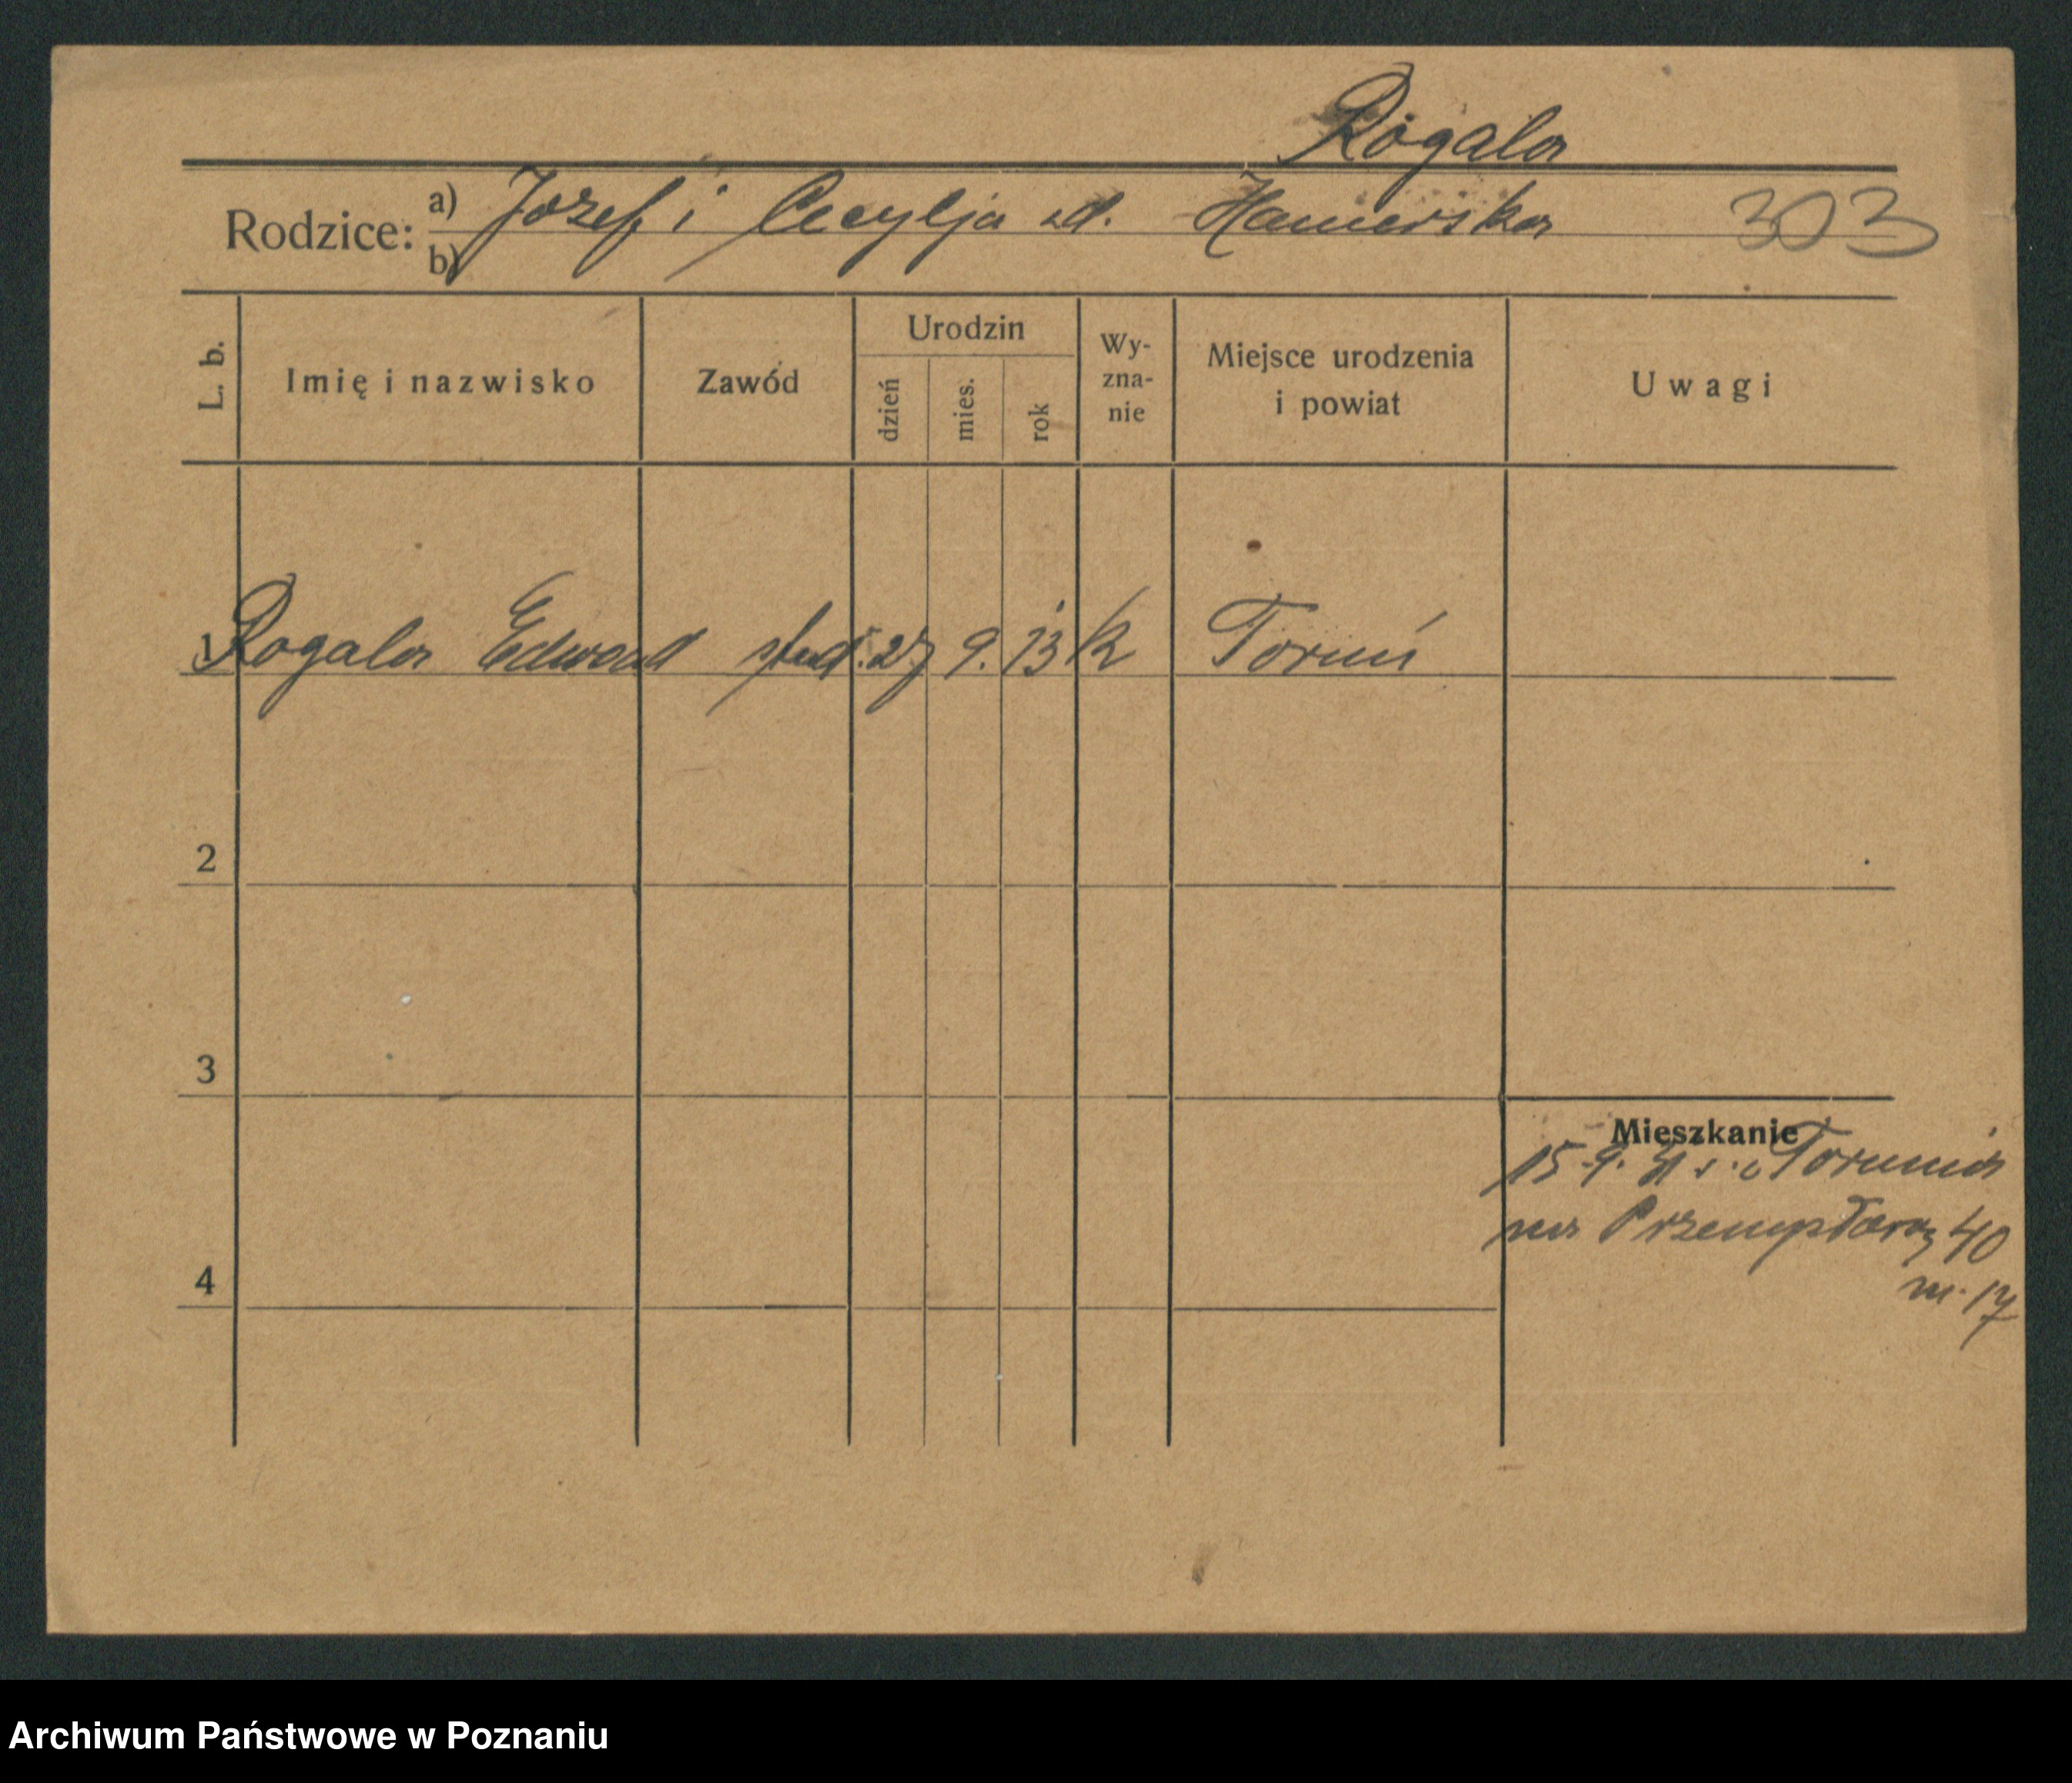 Rogala
Rodzice: a) Jozef i Cecylja zd. Hamerska 303
b)
L. b. Imię i nazwisko Zawód Urodzin dzień mies. rok Wy-zna-nie Miejsce urodzenia i powiat Uwagi
1 Rogala Edward stud. 27 9. 13 k Toruń
2
3
Mieszkanie
15.9.31 z Torunia
na Przemysłową 40
4
m. 17
Archiwum Państwowe w Poznaniu